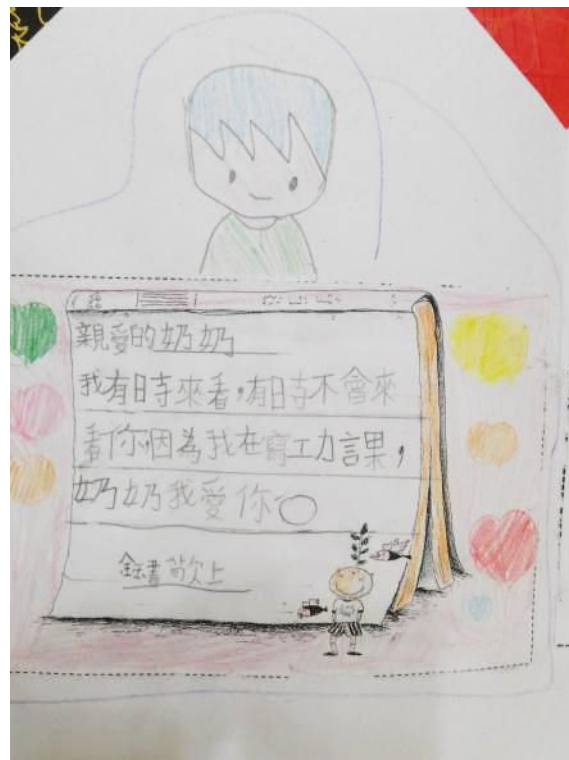 親愛的奶奶
我有時來看,有時不會來
看你因為我在寫功課,
奶奶我愛你。
敬上